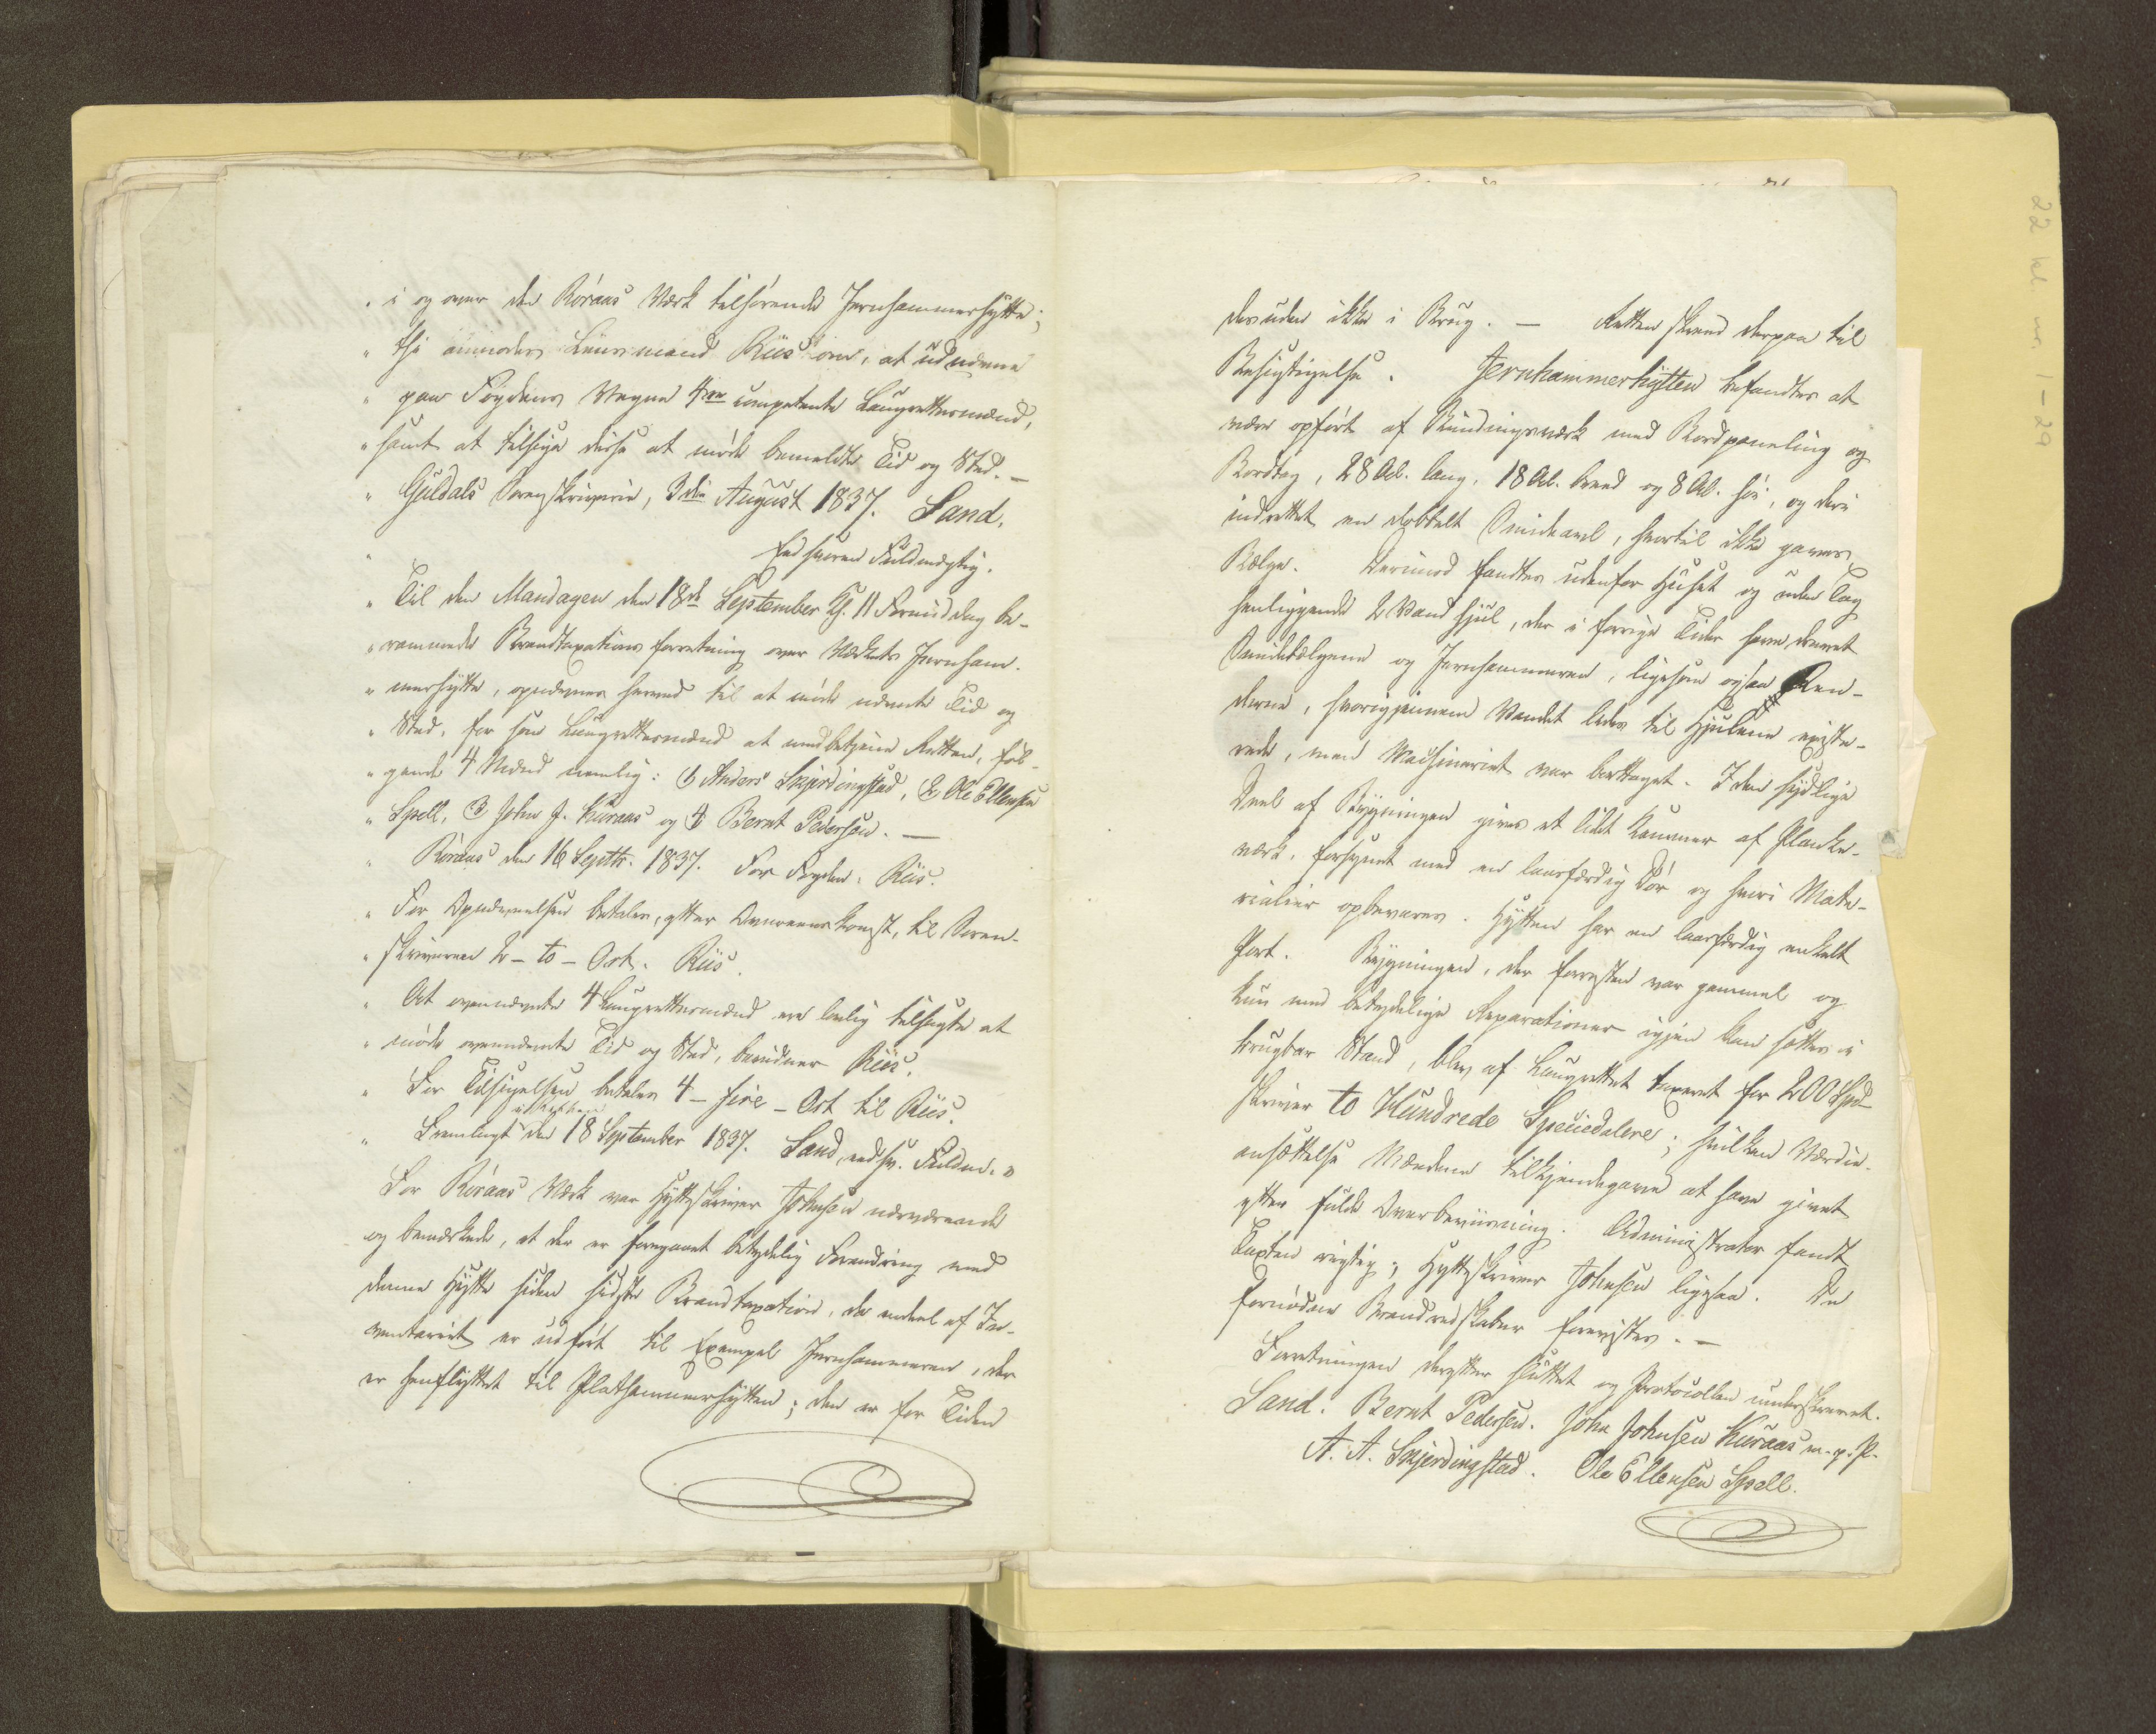 " i og over den Röraas Værk tilhörende Jernhammerhytte;
" thi anmodes Lensmand Riis om, at udnævne
" paa Fogdens Vegne 4re competente Laugrettesmænd,
" samt at tilsige disse at möde bemeldte Tid og Sted. –
" Guldals Sorenskriverie, 3die August 1837. Sand,
" Eedsvoren Fuldmægtig.
" Til den Mandagen den 18de September Kl. 11 Formiddag be-
" rammede Brandtaxationsforretning over Værkets Jernham-
" merhytte, opnævnes herved til at möde nævnte Tid og
" Sted, for som Laugrettesmænd at medbetjene Retten, föl-
" gende 4 Mænd nemlig: 1, Anders Skjerdingstad, 2, Ole Ellensen
" Spell, 3, John J. Kuraas og 4, Bernt Pedersen. –
" Röraas den 16 Septbr. 1837. For Fogden. Riis.
" For Opnævnelsen betales, efter Overeenskomst, til Soren-
" skriveren 2 – to – Ort. Riis.
" At ovennævnte 4 Laugrettesmænd ere lovlig tilsagte at
" möde ovennævnte Tid og Sted, bevidner Riis.
" For Tilsigelsen betales 4 – fire – Ort til Riis.
" Fremlagt i Retten den 18 September 1837. Sand, eedsv. Fuldm. "
For Röraas Værk var Hytteskriver Johnsen nærværende
og bemærkede, at der er foregaaet betydelig Forandring med
denne Hytte siden sidste Brandtaxation, da endeel af In-
ventariet er udfört til Exempel Jernhammeren, der
er henflyttet til Plathammerhytten; den er for Tiden
desuden ikke i Brug. – Retten skreed derpaa til
Besigtigelse. Jernhammerhytten befandtes at
være opfört af Bindingsværk med Bordpaneling og
Bordtag, 28 Al. lang, 18 Al. breed og 8 Al. höi, og deri
indrettet en dobbelt Smideavl, hvortil ikke haves
Bælge. Derimod fandtes udenfor Huset og under Tag
henliggende 2 Vandhjul, der i forrige Tider have drevet
Smidebælgene og Jernhammeren, ligesom ogsaa Ren-
derne, hvorigjennem Vandet ledes til Hjulene existe-
rede, men Machineriet var borttaget. I den sydlige
Deel af Bygningen gives et lidet Kammer af Planke-
værk, forsynet med en laasfærdig Dör og hvori Mate-
rialier opbevares. Hytten har en laasfærdig enkelt
Port. Bygningen, der forresten var gammel og
kun med betydelige Reparationer igjen kan sættes i
brugbar Stand, blev af Laugrettet taxeret for 200 Spd
skriver to Hundrede Speciedalere; hvilken Værdie-
ansættelse Mændene tilkjendegave at have givet
efter fulde Overbeviisning. Administrator fandt
Taxten rigtig; Hytteskriver Johnsen ligesaa. De
fornödne Brandredskaber forevistes. –
Forretningen derefter sluttet og Protocollen underskrevet.
Sand. Bernt Pedersen. John Johnsen Kuraas m. p. P.
A. A. Skjerdingstad. Ole Ellensen Spell.
22 kl nr 1-29